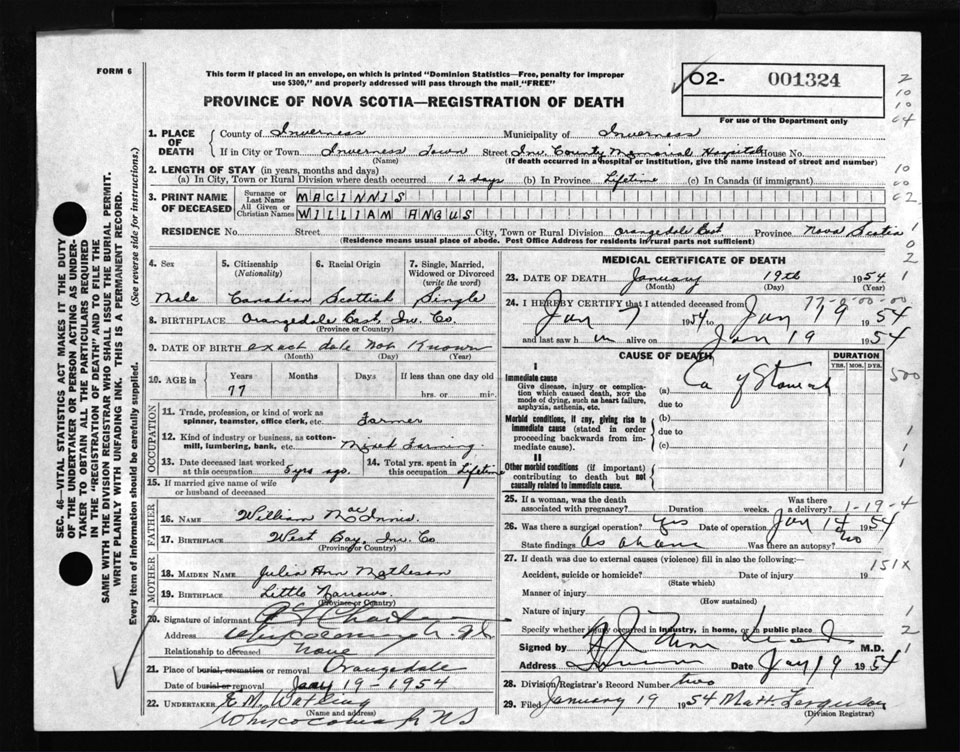 FORM 6
This form if placed in an envelope, on which is printed "Dominion Statistics—Free, penalty for improper
use $300," and properly addressed will pass through the mail "FREE"
02- 001324
For use of the Department only
PROVINCE OF NOVA SCOTIA—REGISTRATION OF DEATH
1. PLACE OF DEATH
County of Inverness Municipality of Inverness
If in City or Town Inverness Town Street Inv. County Memorial Hospital House No.
(Name) (If death occurred in a hospital or institution, give the name instead of street and number)
2. LENGTH OF STAY (in years, months and days)
(a) In City, Town or Rural Division where death occurred 12 days (b) In Province Lifetime (c) In Canada (if immigrant)
3. PRINT NAME OF DECEASED
Surname or Last Name MACINNIS
All Given or Christian Names WILLIAM ANGUS
RESIDENCE No. Street City, Town or Rural Division Orangedale East Province Nova Scotia
(Residence means usual place of abode. Post Office Address for residents in rural parts not sufficient)
4. Sex Male
5. Citizenship (Nationality) Canadian
6. Racial Origin Scottish
7. Single, Married, Widowed or Divorced (write the word) Single
8. BIRTHPLACE Orangedale East, Inv. Co.
(Province or Country)
9. DATE OF BIRTH exact date not known
(Month) (Day) (Year)
10. AGE in Years Months Days If less than one day old
77 hrs. or min.
OCCUPATION
11. Trade, profession, or kind of work as spinner, teamster, office clerk, etc. Farmer
12. Kind of industry or business, as cotton-mill, lumbering, bank, etc. Mixed Farming
13. Date deceased last worked at this occupation 5 yrs ago.
14. Total yrs. spent in this occupation Lifetime
15. If married give name of wife or husband of deceased
FATHER
16. NAME William MacInnis
17. BIRTHPLACE West Bay, Inv. Co.
(Province or Country)
MOTHER
18. MAIDEN NAME Julia Ann Matheson
19. BIRTHPLACE Little Narrows
(Province or Country)
20. Signature of informant
Address Whycocomagh N.S.
Relationship to deceased none
21. Place of burial, cremation or removal Orangedale
Date of burial or removal Jany 19-1954
22. UNDERTAKER E M Watking
(Name and address)
Whycocomagh NS
MEDICAL CERTIFICATE OF DEATH
23. DATE OF DEATH January 19th 1954
(Month) (Day) (Year)
24. I HEREBY CERTIFY that I attended deceased from
Jan 7 1954 to Jan 19 1954
and last saw him alive on Jan 19 1954
CAUSE OF DEATH
DURATION
YRS. MOS. DYS.
I
Immediate cause
Give disease, injury or complication which caused death, not the mode of dying, such as heart failure, asphyxia, asthenia, etc.
(a) Ca of Stomach
due to
Morbid conditions, if any, giving rise to immediate cause (stated in order proceeding backwards from immediate cause).
(b)
due to
(c)
II
Other morbid conditions (if important) contributing to death but not causally related to immediate cause.
25. If a woman, was the death associated with pregnancy? Duration weeks. Was there a delivery?
1-19-4
26. Was there a surgical operation? Yes Date of operation Jan 14 1954
State findings As above Was there an autopsy? no
27. If death was due to external causes (violence) fill in also the following:
151X
Accident, suicide or homicide? Date of injury 19
(State which)
Manner of injury
(How sustained)
Nature of injury
Specify whether injury occurred in industry, in home, or in public place
Signed by M.D.
Address Date Jan 19 1954
28. Division Registrar's Record Number two
29. Filed January 19 1954 Matt. Ferguson
(Division Registrar)
SEC. 46—VITAL STATISTICS ACT MAKES IT THE DUTY
OF THE UNDERTAKER OR PERSON ACTING AS UNDER-
TAKER TO OBTAIN ALL THE PARTICULARS REQUIRED
IN THE "REGISTRATION OF DEATH" AND TO FILE THE
SAME WITH THE DIVISION REGISTRAR WHO SHALL ISSUE THE BURIAL PERMIT.
WRITE PLAINLY WITH UNFADING INK. THIS IS A PERMANENT RECORD.
Every item of information should be carefully supplied. (See reverse side for instructions.)